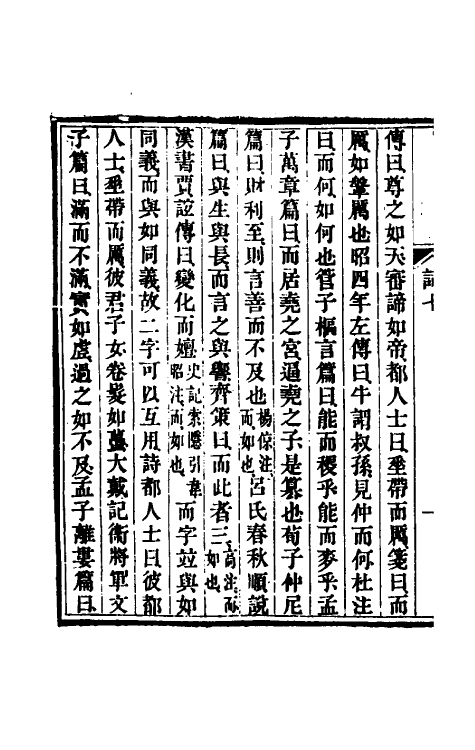 傳曰尊之如天審諦如帝都人士曰垂帶而厲箋曰而
厲如鞶厲也昭四年左傳曰牛謂叔孫見仲而何杜注
曰而何如何也管子樞言篇曰能而稷乎能而麥乎孟
子萬章篇曰而居堯之宮逼堯之子是篡也荀子仲尼
篇曰財利至則言善而不及也楊倞注而如也呂氏春秋順說
篇曰與生與長而言之與響齊策曰而此者三高注而如也
漢書賈誼傳曰變化而嬗史記索隱引韋昭注而如也而字竝與如
同義而與如同義故二字可以互用詩都人士曰彼都
人士垂帶而厲彼君子女卷髮如蠆大戴記衞將軍文
子篇曰滿而不滿實如虛過之如不及孟子離婁篇曰